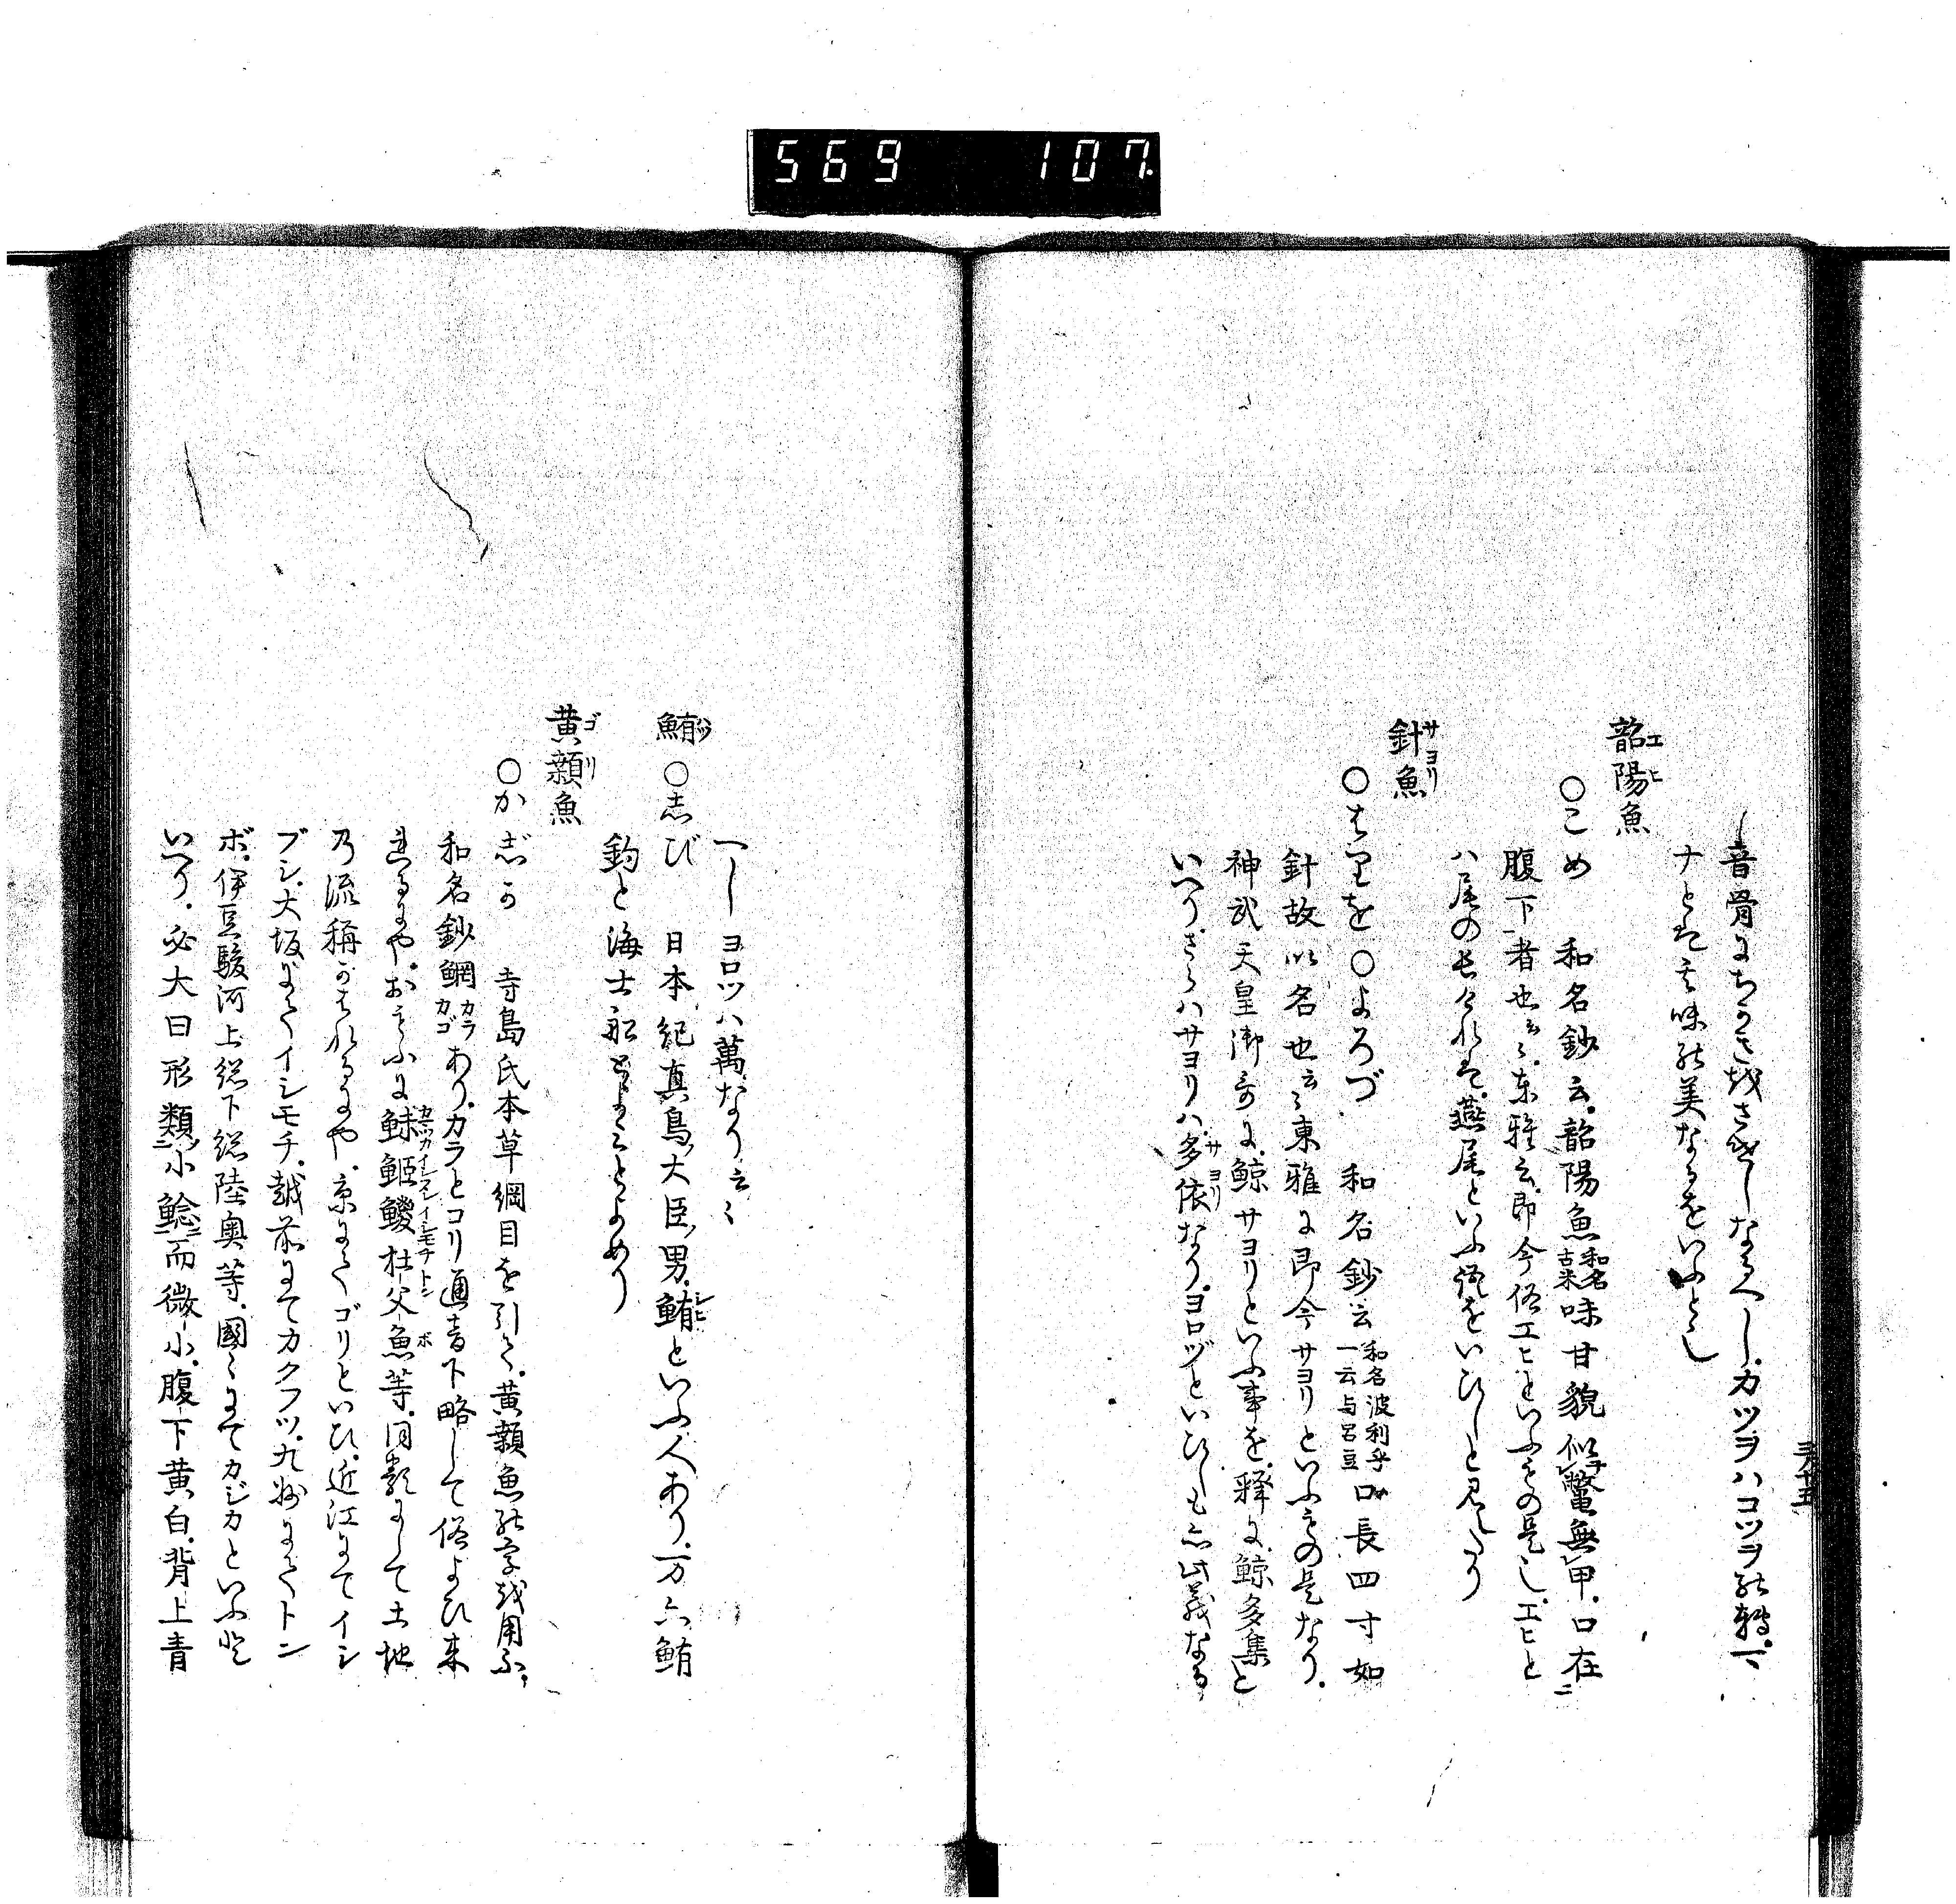 569 107
三ノ十五
音骨にちかき故させしなるへし、カツヲハコツヲの轉、一
ナとは言味の美なるをいふとし
韶陽魚
エヒ
○こめ 和名鈔云、韶陽魚 和名古米 味甘貌似鼈無甲、口在
腹下者也云々、東雅云、即今俗エヒといふもの是し、エヒと
ハ尾の長けれは、燕尾といふ侭をいひしと見えたり
針魚
サヨリ
○はりを ○よろづ 和名鈔云 和名波利乎 一云与呂豆 口長四寸如
針故以名也云々東雅に即今サヨリといふもの是なり、
神武天皇御哥に、鯨サヨリといふ事を、釋に鯨多集と
いへり、さらハサヨリハ、多依なり、ヨロヅといひしも亦此義なる
サヨリ
へし ヨロツハ萬なり云々
鮪 ○志び 日本紀真鳥大臣男、鮪といふ人あり、万六鮪
シヒ
釣と海士船とよことよめり
黄顙魚
ゴリ
○かぢか 寺島氏本草綱目を引く、黄顙魚の字を用ふ、
和名鈔䱍 カラカゴ あり、カラとコリ通音下略して俗よひ来
れるにや、おもふに䱅䱌鯼杜父魚等、同類にして土地
乃流稱かはれるにや、京にてゴリといひ、近江にてイシ
ブシ、大坂にてイシモチ、越前にてカクフツ、九州にてトン
ボ、伊豆駿河上総下総陸奥等、國々にてカジカといふと
いへり、必大曰形類小鯰而微小、腹下黄白、背上青